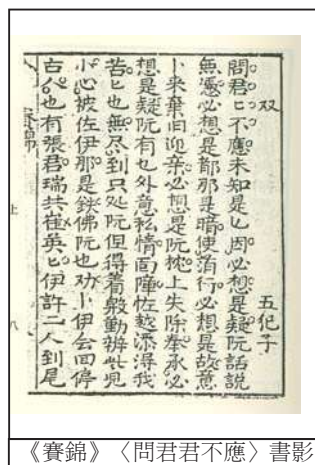 双　五伀子
問君匕不應未知是乜因必想是疑阮話說
無憑必想是鄙那是暗使消行必想是故意
卜來棄旧迎亲必想是阮枕上失除奉承必
想是疑阮有乜外意私情向障佐越添得我
苦匕也無尽到只处阮但得着殷勤辨此児
小心被佐伊那是鉄佛阮也劝卜伊会回停
古人也有張君瑞共崔英匕伊許二人到尾
賽錦
上
八
《賽錦》〈問君君不應〉書影